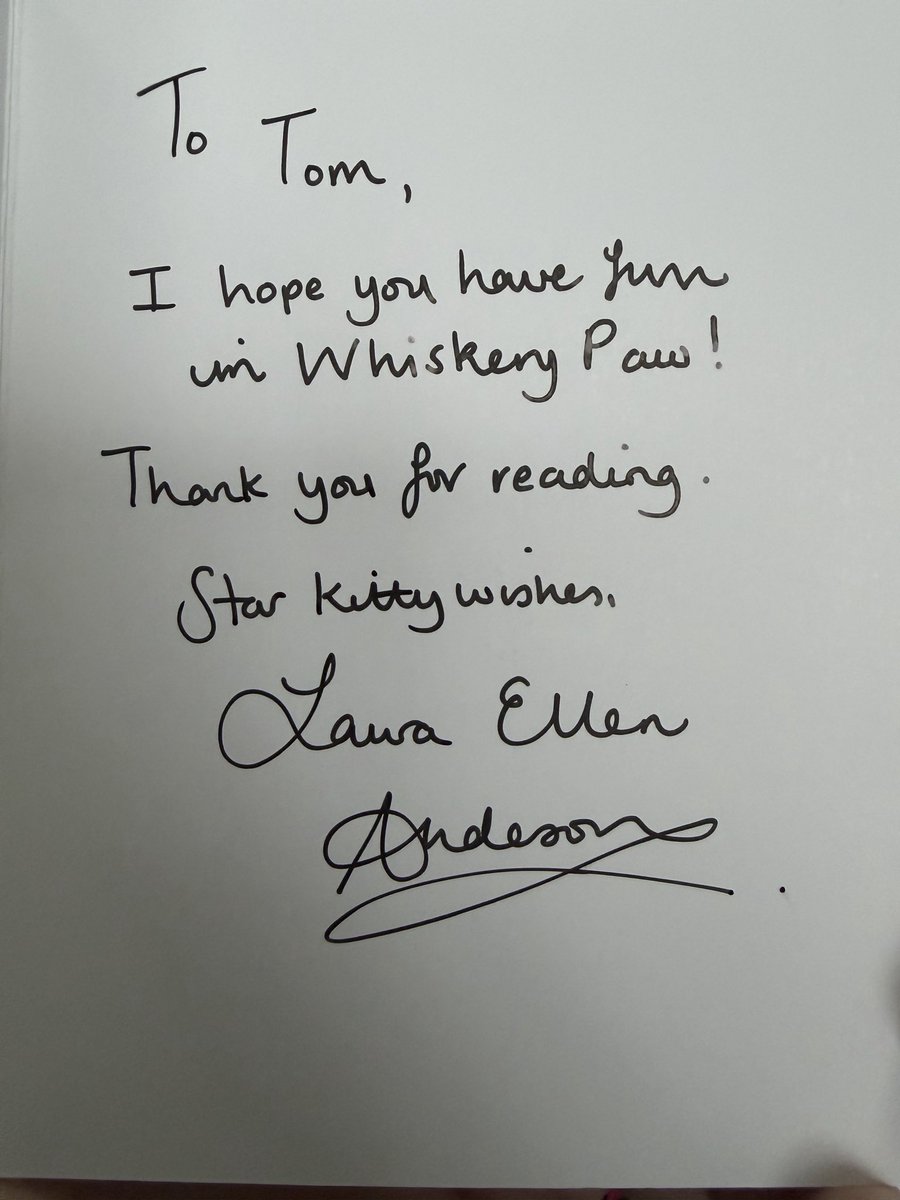 To Tom,
I hope you have fun
in Whiskery Paw!
Thank you for reading.
Star Kitty wishes.
Laura Ellen
Anderson